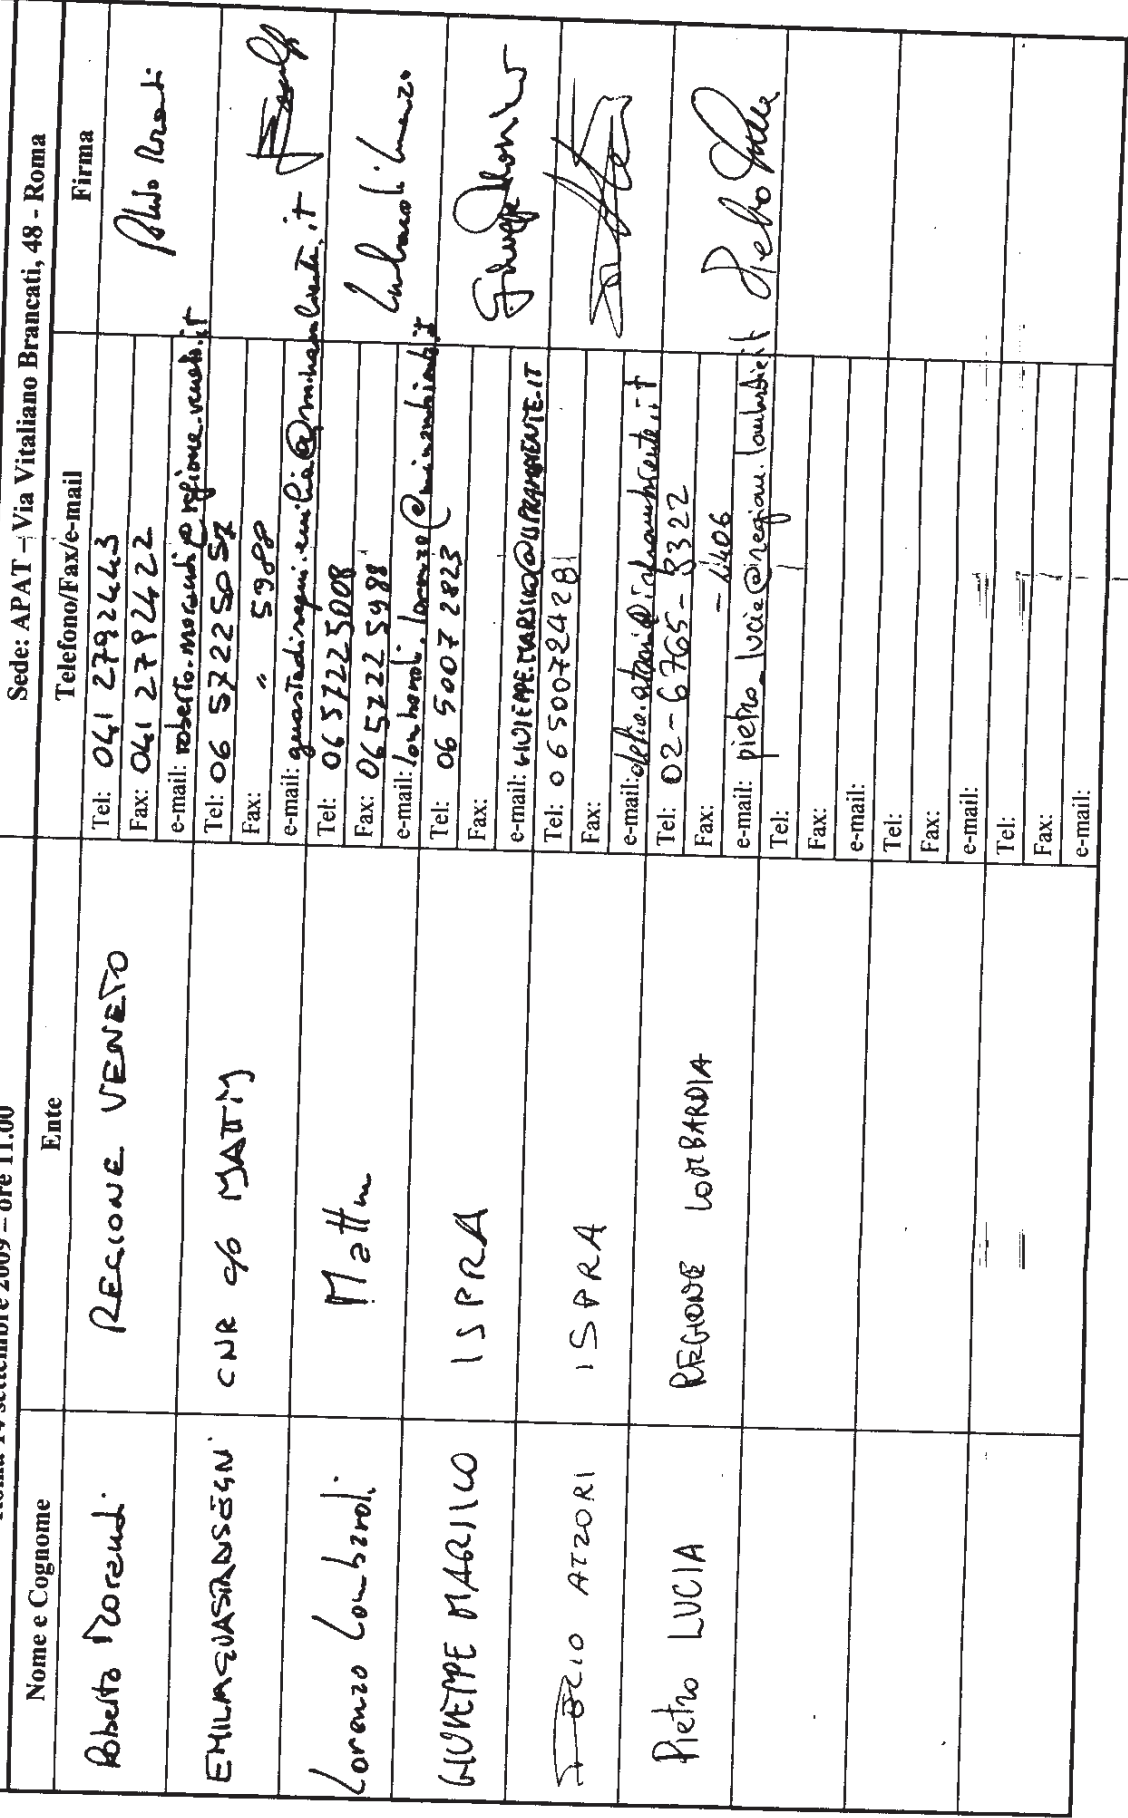 Roma 14 settembre 2009 – ore 11.00
Sede: APAT – Via Vitaliano Brancati, 48 - Roma
Nome e Cognome Ente Telefono/Fax/e-mail Firma
Roberto Morandi REGIONE VENETO
Tel: 041 2792443
Fax: 041 2792422
e-mail: roberto.morandi@regione.veneto.it
CNR c/o MATTM
Tel: 06 57225057
Fax: " 5988
e-mail: guastadisegni.emilia@minambiente.it
Lorenzo Lombardi Mattm
Tel: 06 57225008
Fax: 06 57225988
e-mail: lombardi.lorenzo@minambiente.it
GIUSEPPE MARSICO ISPRA
Tel: 06 50072823
Fax:
e-mail: GIUSEPPE.MARSICO@ISPRAMBIENTE.IT
ATZORI ISPRA
Tel: 0650074281
Fax:
e-mail:
Pietro LUCIA REGIONE LOMBARDIA
Tel: 02-6765-3322
Fax: - 4406
e-mail: pietro_lucia@regione.lombardia.it
Tel:
Fax:
e-mail:
Tel:
Fax:
e-mail:
Tel:
Fax:
e-mail: